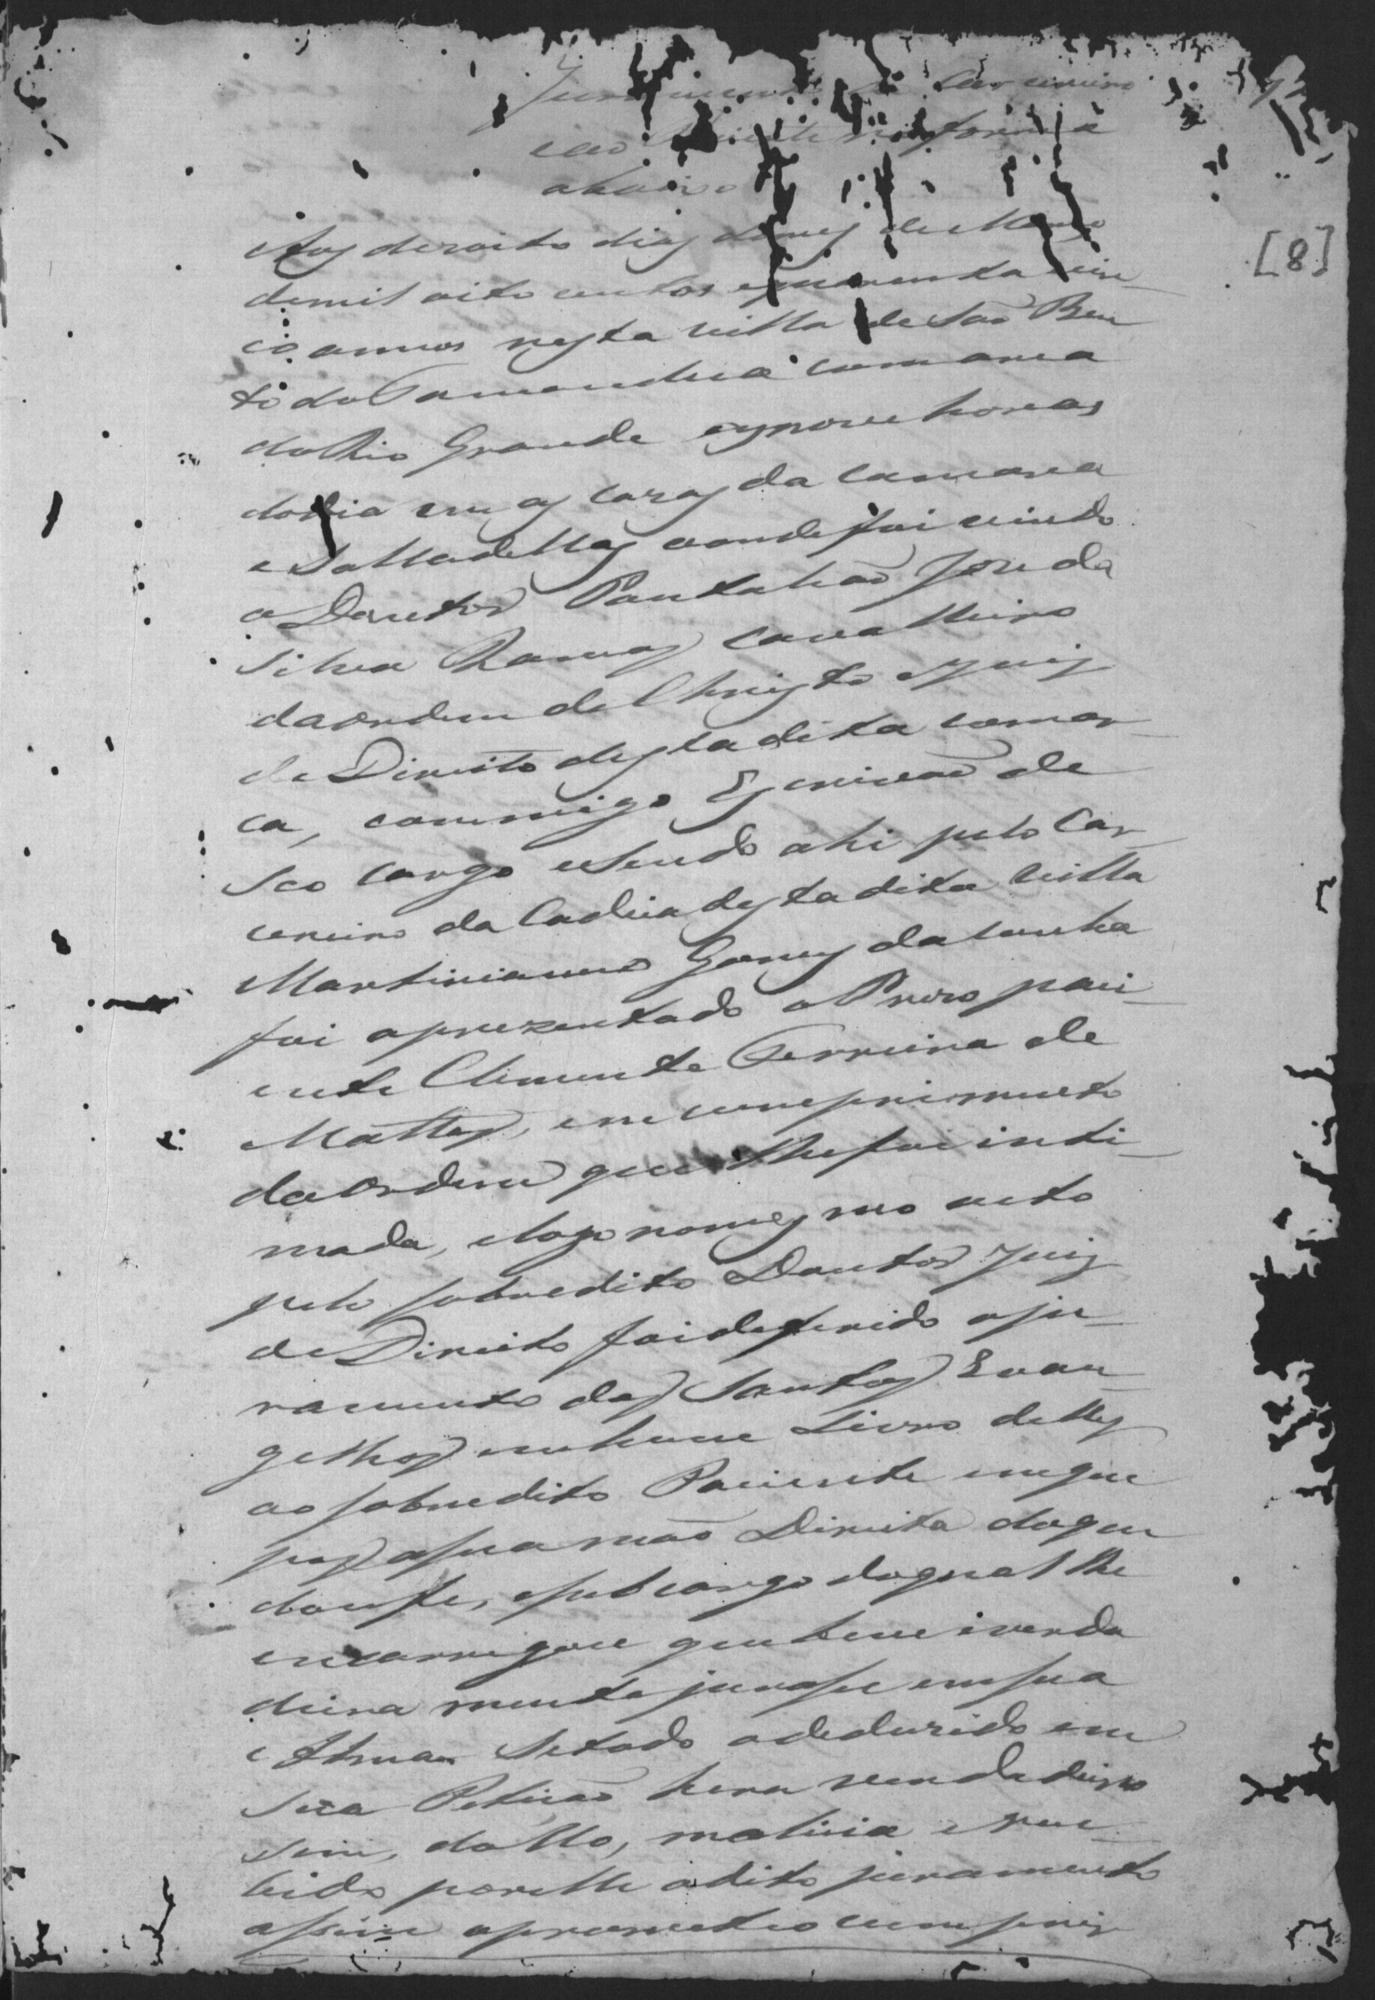 Juramento
ao Paciente na forma
abaixo
[8]
Aos dezoito dias do mes de Março
de mil oito centos e quarenta e cin
co annos nesta villa de São Ben
to do Tamanduá comarca
do Rio Grande as nove horas
do dia em as cazas da Camara
e Salla dellas aonde foi vindo
o Doutor Pantaleão Jose da
Silva Ramos Cavalleiro
da ordem de Christo e Juiz
de Direito desta dita comar-
ca, commigo Escrivão de
seo cargo e sendo ahi pelo Car-
cereiro da Cadeia desta dita villa
Martiniano Gomes da Cunha
foi aprezentado o Prezo paci-
ente Clemente Ferreira de
Mattos, em comprimento
da ordem que lhe foi inti-
mada, e logo no mesmo acto
pelo sobredito Doutor Juiz
de Direito foi deferido o ju-
ramento dos Santos Evan-
gelhos em hum Livro delles
ao sobredito Paciente em que
pos a sua mão Direita do que
dou fe, e sub cargo do qual lhe
encarregou que bem i verda
deira mente jurasse em sua
Alma se todo o deduzido em
sua Petição hera verdadeiro
sem, dollo, malicia e rece-
bido por elle o dito juramento
assim o prometeo cumprir